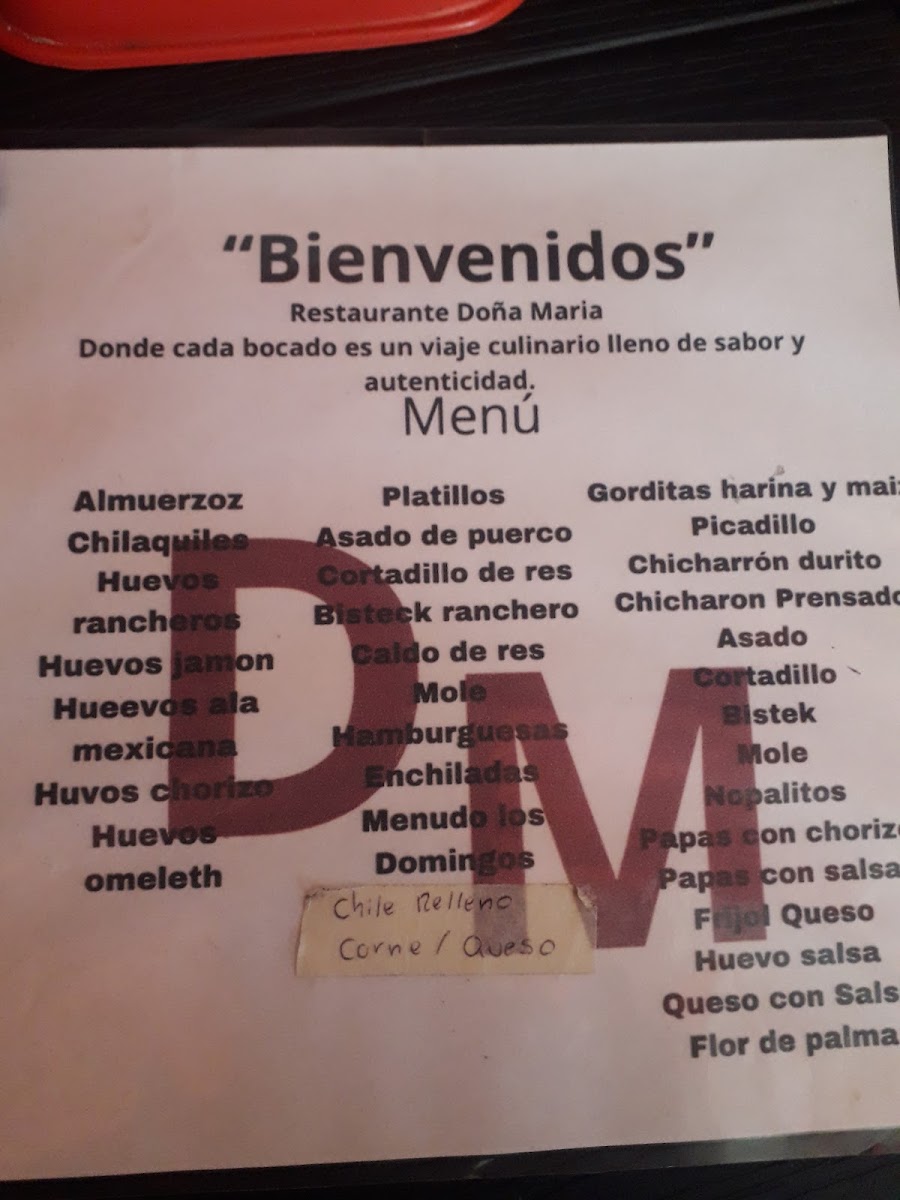 “Bienvenidos”
Restaurante Doña Maria
Donde cada bocado es un viaje culinario lleno de sabor y
autenticidad.
Menú
Almuerzoz
Chilaquiles
Huevos
rancheros
Huevos jamon
Hueevos ala
mexicana
Huvos chorizo
Huevos
omeleth
Platillos
Asado de puerco
Cortadillo de res
Bisteck ranchero
Caldo de res
Mole
Hamburguesas
Enchiladas
Menudo los
Domingos
Chile Relleno
Corne / Queso
Gorditas harina y maiz
Picadillo
Chicharrón durito
Chicharon Prensado
Asado
Cortadillo
Bistek
Mole
Nopalitos
Papas con chorizo
Papas con salsa
Frijol Queso
Huevo salsa
Queso con Sals
Flor de palma
DM